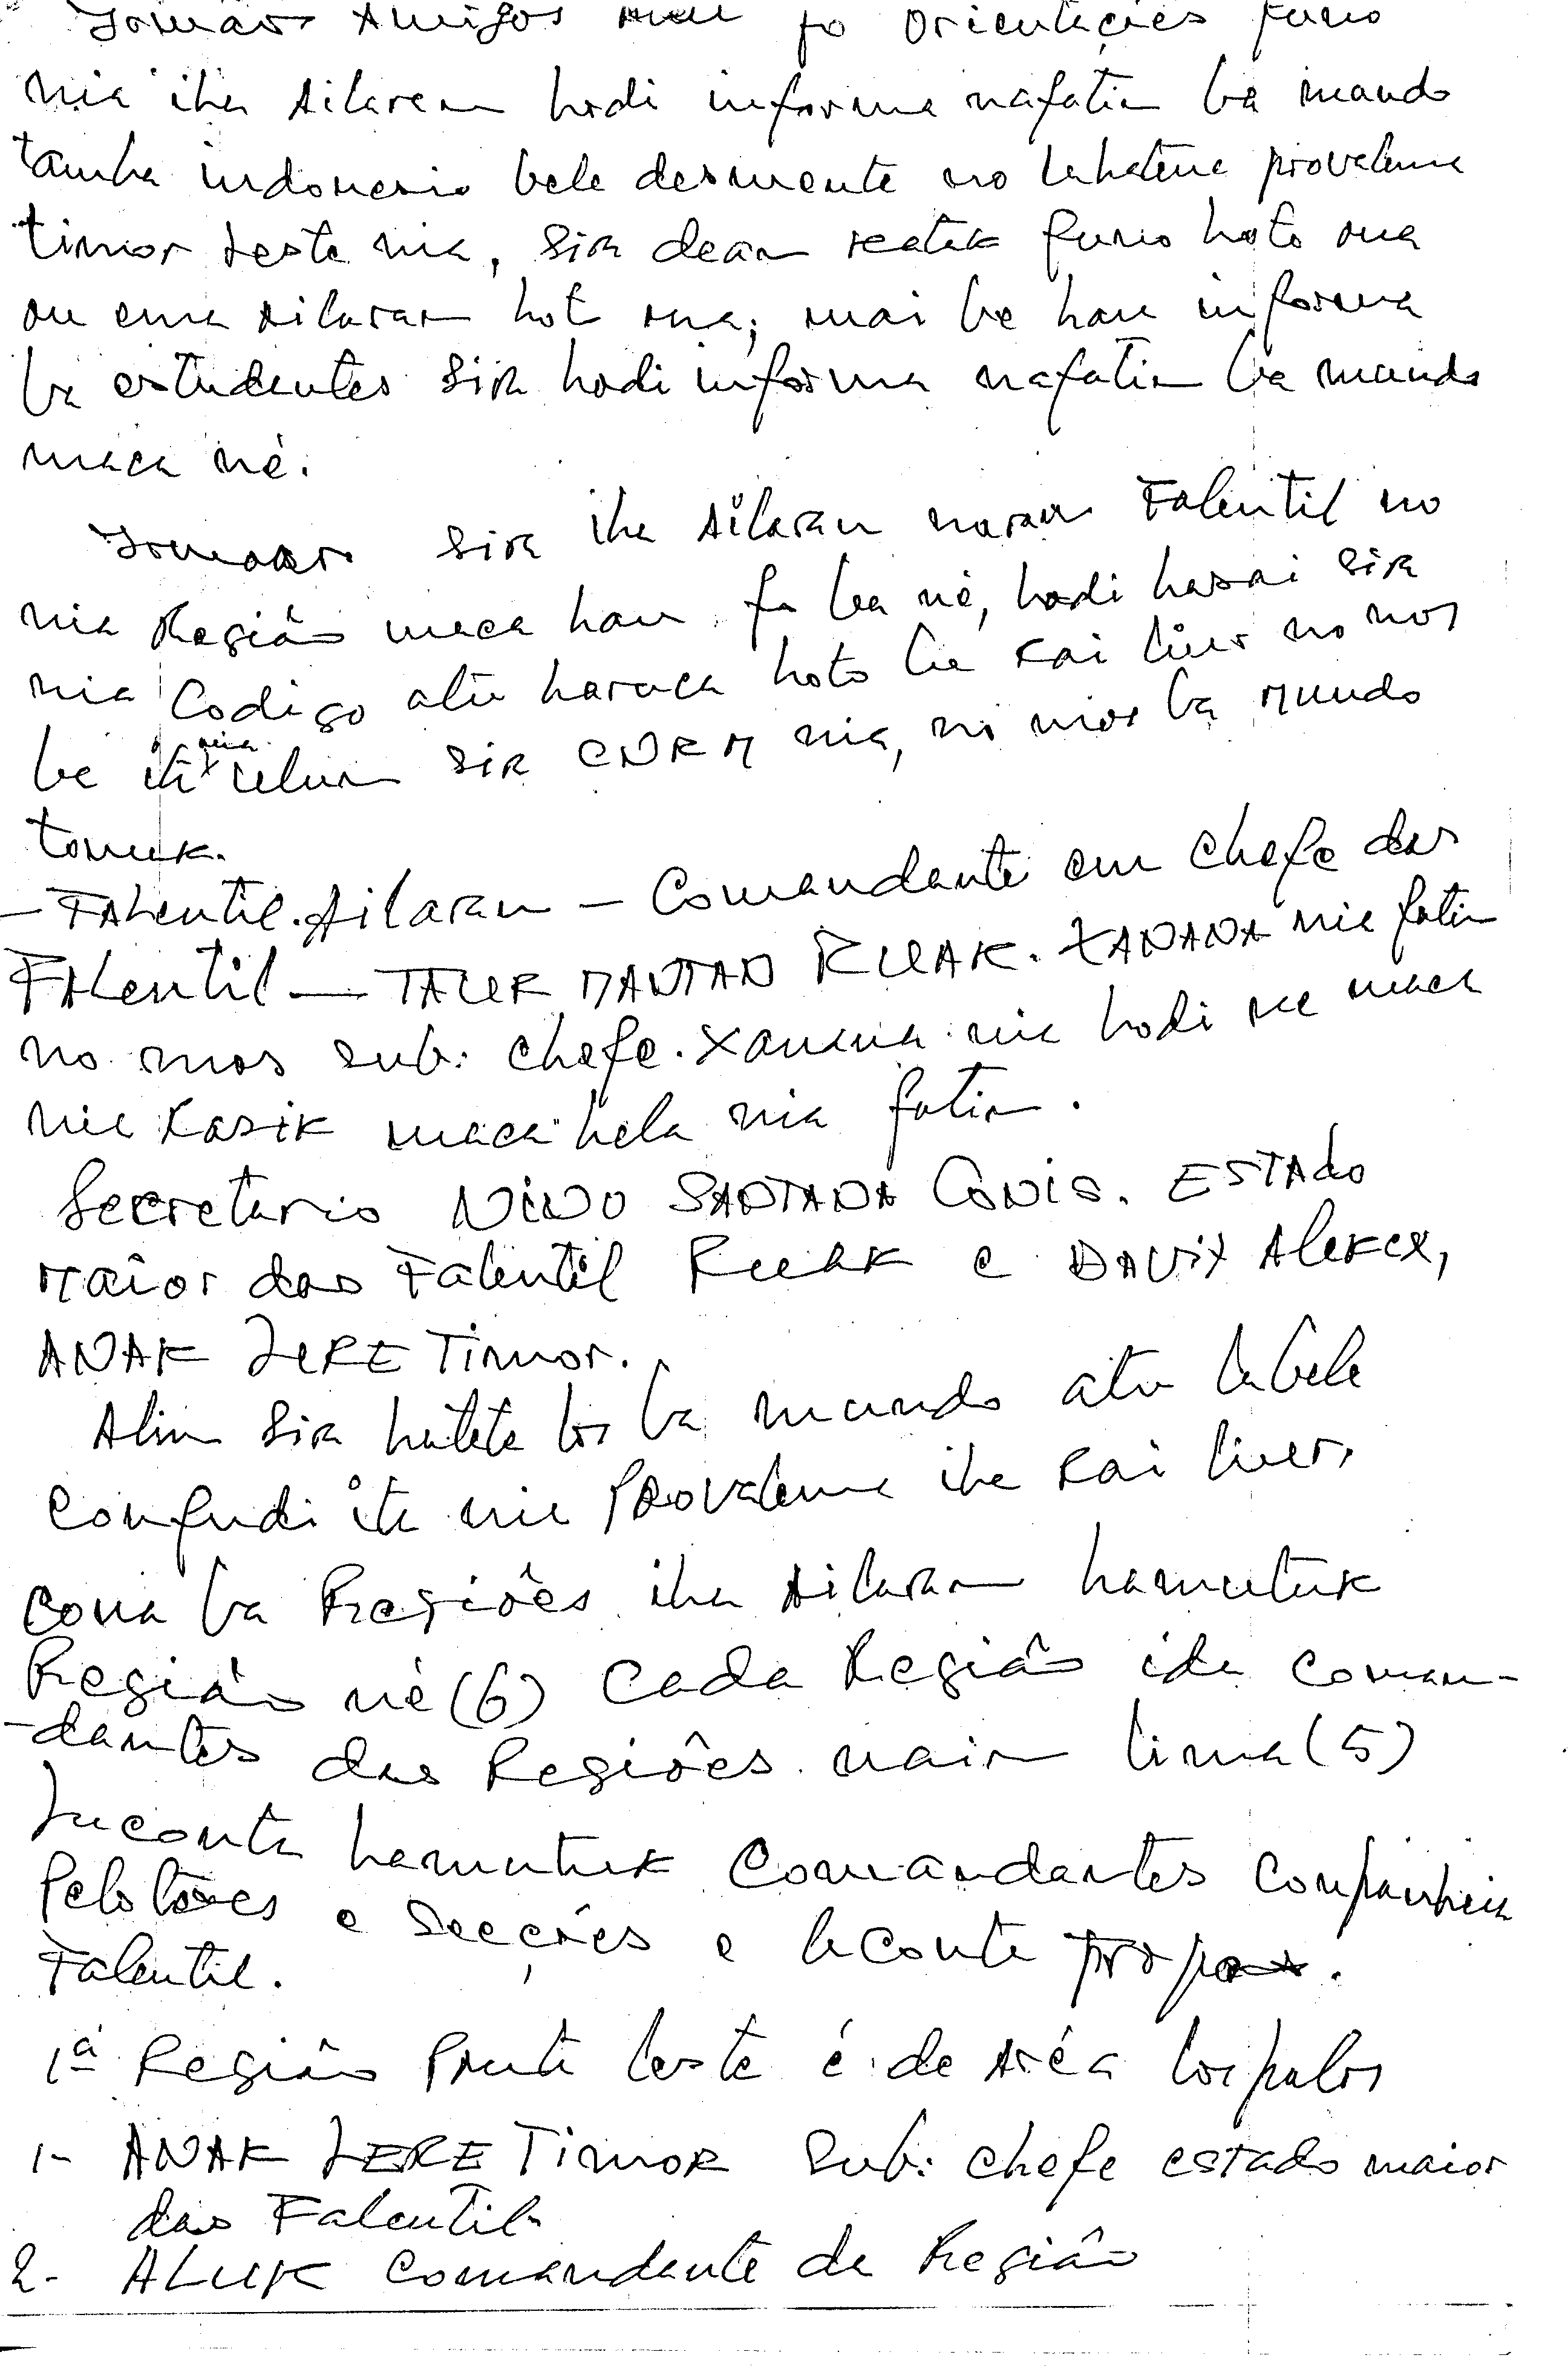 Irmaos Amigos hau fo Orientacões funo
nia iha Ailaran hodi informa nafatin ba mundo
tamba indonesio bele desmente no lahatene provalema
timor Leste nia, sira dean katak funo hoto ona
ou ema Ailaran hot ona; mai be hau informa
ba estudentes sira hodi informa nafatin ba mundo
maca né.
sira iha Ailaran naran Falentil no
nia Região maca hau fo ba né, hodi hasai sira
nia Codigo atu haruca hoto ba Rai liur no mos
be ita nia relun sira CNRM nia, no mos ba Mundo
tomuk.
— FALentil. Ailaran — Comandante em chefe das
FALentil — TAUR MANTAN RUAK. XANANA nia fatin
no mos sub: chefe. Xanana nia hodi né maca
nia Kasik maca hela nia fatin.
Secretario NINO SANTANA CONIS. ESTADo
Maior das Falentil Ruak e DAVIX ALEKEX,
ANAK LERE Timor.
Alin sira hatete los ba mundo atu labele
confudi ita nia Provalema iha Rai liur,
cona ba Regiões iha Ailaran hamutuk
Região né (6) Cada Região ida coman-
-dantes das Regiões nain lima (5)
Laconta hamutuk Comandantes Companheia
Pelotões e Secções e laconta tropas.
Falentil.
1ª Região Ponta Leste é de Aréa Lospalos
1- ANAK LERE TimoR Sub: chefe estado maior
das Falentil-
2- ALUK Comandante da Região